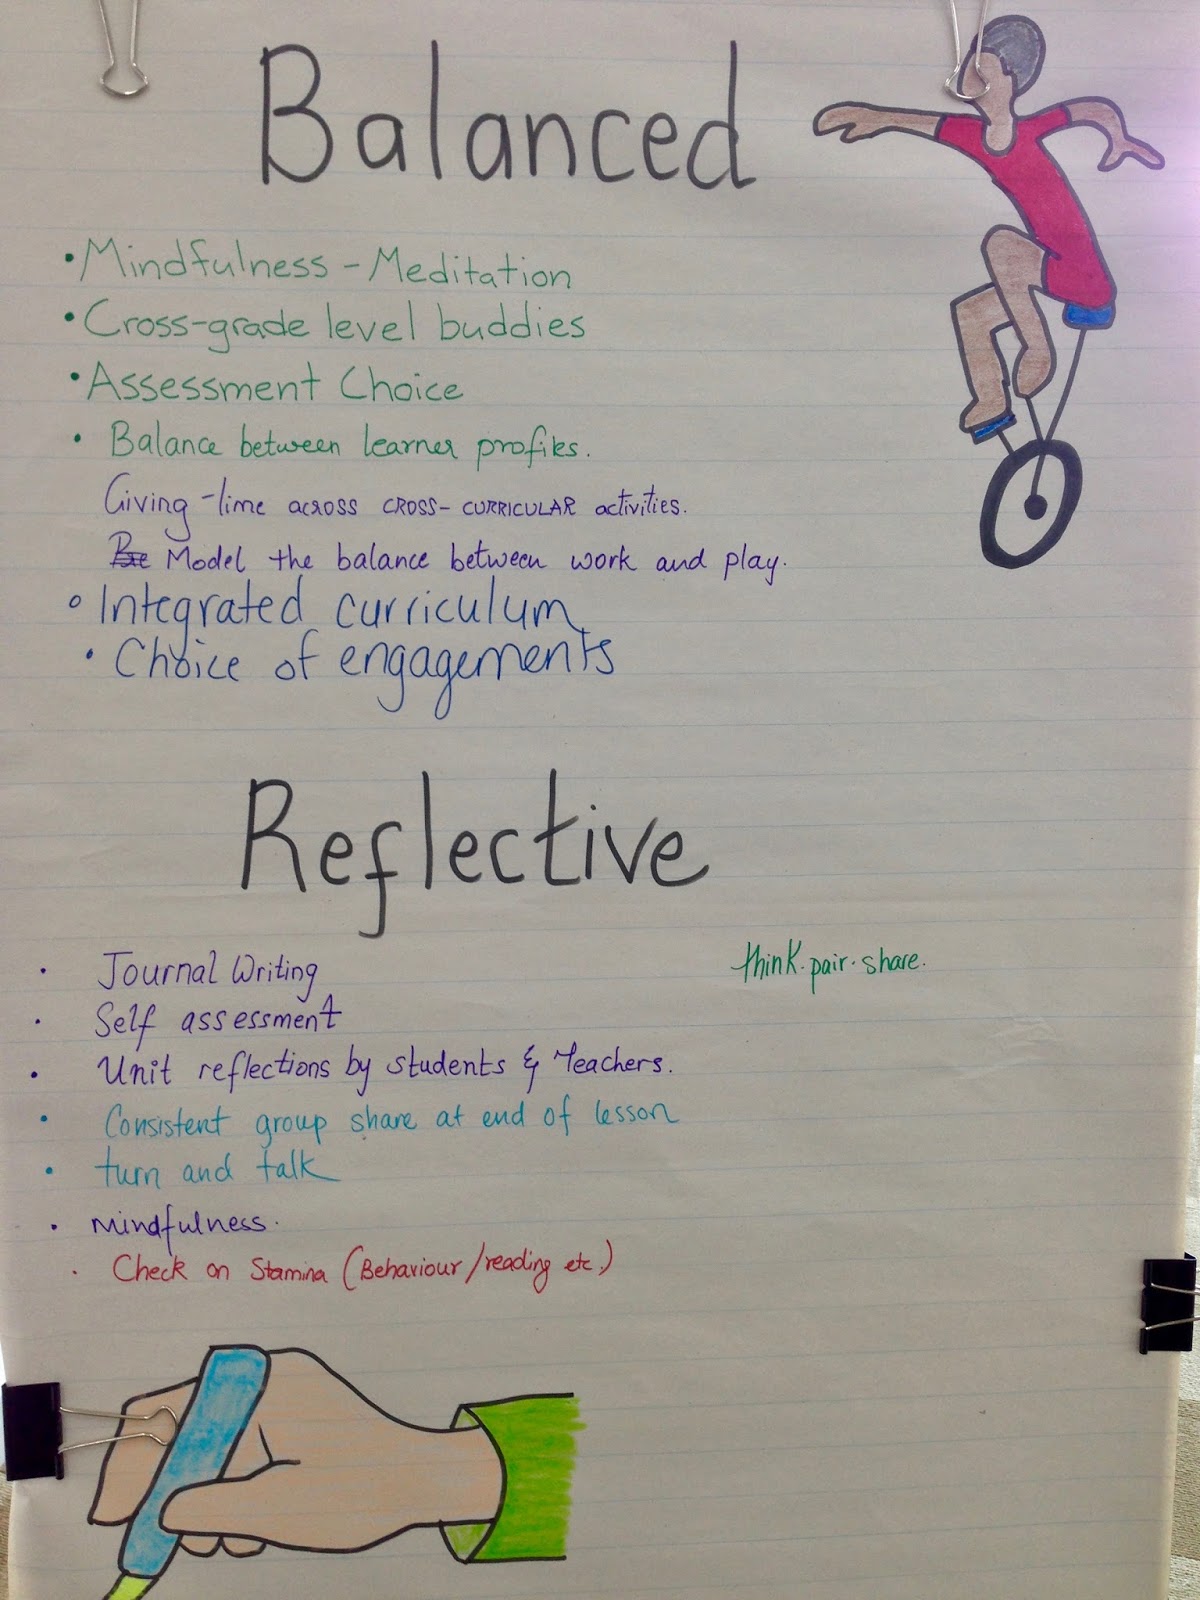 Balanced
• Mindfulness - Meditation
• Cross-grade level buddies
• Assessment Choice
• Balance between learner profiles.
Giving time across CROSS-CURRICULAR activities.
Be Model the balance between work and play.
• Integrated curriculum
• Choice of engagements
Reflective
• Journal Writing
think.pair.share.
• Self assessment
• Unit reflections by students & Teachers.
• Consistent group share at end of lesson
• turn and talk
• Mindfulness.
• Check on Stamina (Behaviour/reading etc.)